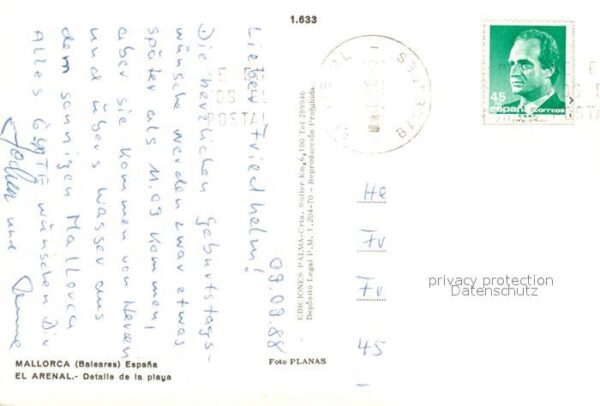 1.633
45
españa correos
BALEARES
POSTAL
09.09.88
Lieber Friedhelm!
Die herzlichen Geburtstags-
wünsche werden zwar etwas
später als 11.09 kommen,
aber sie kommen von Herzen
und übers Wasser aus
dem sonnigen Mallorca
Alles Gute wünschen Dir
und
EDICIONES PALMA-Crta. Soller Km. 6,100 Tel 289946
Depósito Legal P.M. 1.204-70 - Reproducción Prohibida
He
Fv
Fv
45
privacy protection
Datenschutz
Foto PLANAS
MALLORCA (Baleares) España
EL ARENAL.- Detalle de la playa